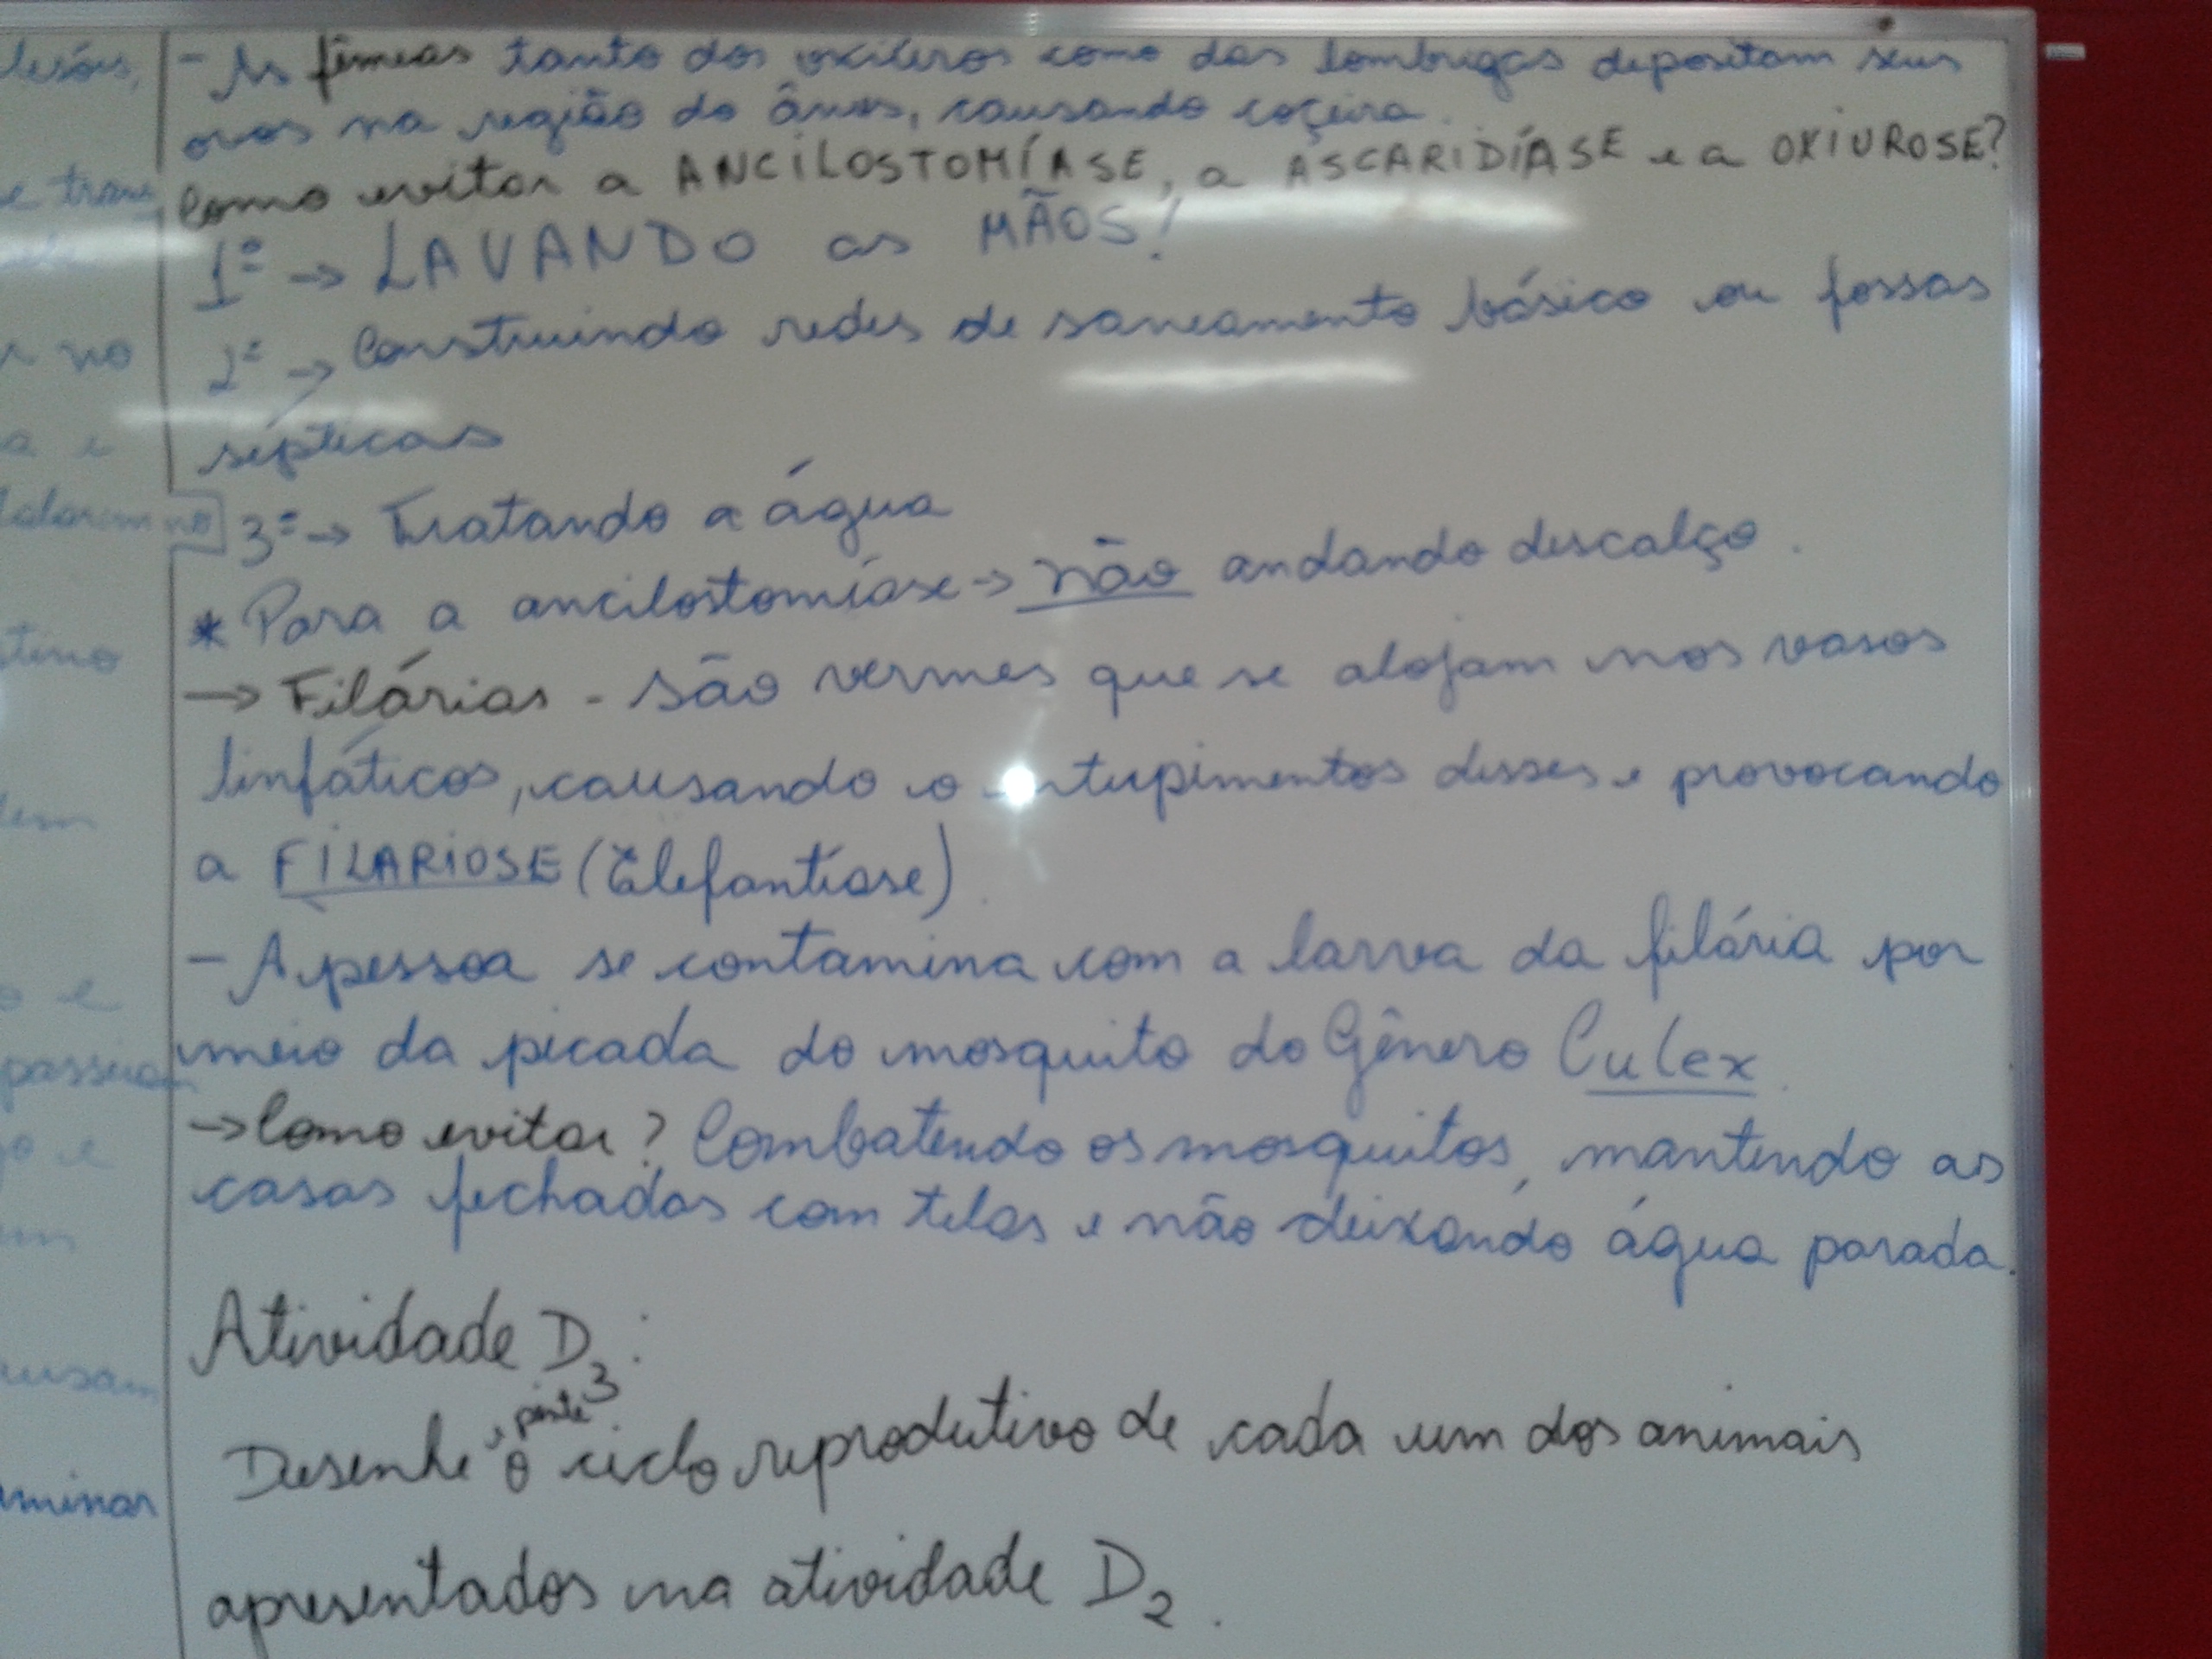 - As fêmeas tanto dos oxiúros como das lombrigas depositam seus
ovos na região do ânus, causando coçeira.
Como evitar a ANCILOSTOMÍASE, a ASCARIDÍASE e a OXIUROSE?
1º → LAVANDO as MÃOS!
2º → Construindo redes de saneamento básico ou fossas
sépticas
3º → Tratando a água
* Para a ancilostomíase → não andando descalço.
→ Filárias - são vermes que se alojam nos vasos
linfáticos, causando o entupimentos desses e provocando
a FILARIOSE (Elefantíase)
- A pessoa se contamina com a larva da filária por
meio da picada do mosquito do Gênero Culex.
→ Como evitar? Combatendo os mosquitos, mantendo as
casas fechadas com telas e não deixando água parada.
Atividade D3:
Desenhe e pinte o ciclo reprodutivo de cada um dos animais
apresentados na atividade D2.